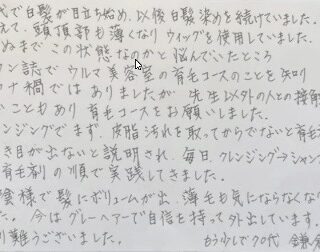 代で白髪が目立ち始め、以後白髪染めを続けていました。
えて、頭頂部も薄くなりウィッグを使用していました。
ぬまでこの状態なのかと悩んでいたところ
ン誌でウルマ美容室の育毛コースのことを知り
ナ禍ではありましたが、先生以外の人との接触
いこともあり育毛コースをお願いしました。
ンジングでまず、皮脂汚れを取ってからでないと育毛
き目が出ないと説明され、毎日、クレンジング→シャン
育毛剤の順で実践してきました。
陰様で髪にボリュームが出、薄毛も気にならなくな
た。今はグレーヘアーで自信を持って外出しています。
り難うございました。 もう少しで70代 鎌倉